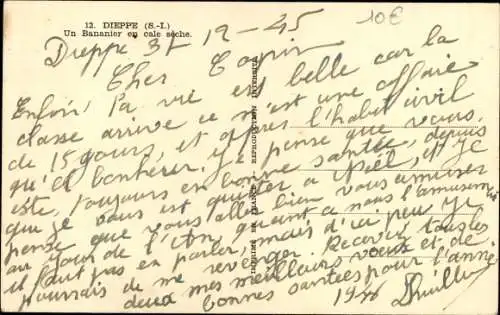 12. DIEPPE (S.-I.)
Un Bananier en cale sèche.
10€
Dieppe 31-12-45
Cher Copin
Enfin! la vie est belle car la
classe arrive ce n'est une affaire
de 15 jours, et après l'habit civil
qu'el bonheur. Je pense que vous
este, toujours en bonne santée, depuis
que je vous est quitter a Noël, et je
pense que vous allez bien vous amuser
au jour de l'An, quant a nous l'amusement
il faut pas en parler, mais d'ici peu je
pourrais de me revenger. Recevez tous les
deux mes meilleurs vœux et de
bonnes santées pour l'année
1946
IMPRIMÉ EN FRANCE REPRODUCTION INTERDITE